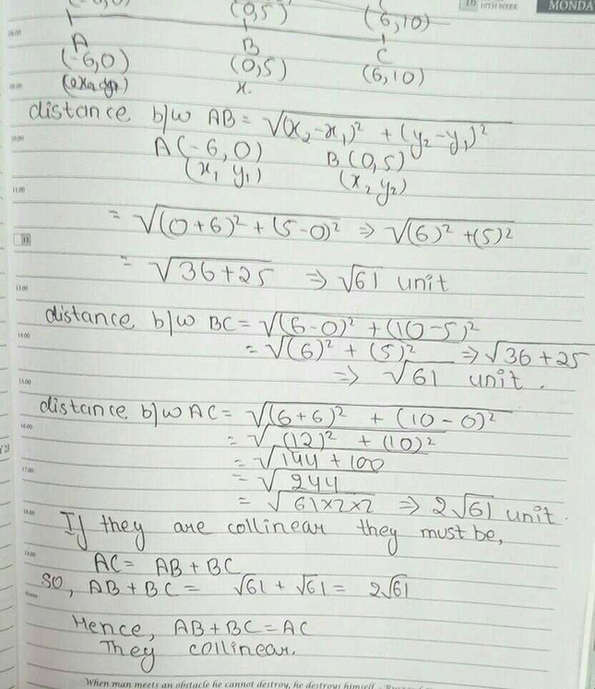 (0,5) (6,10)
10 10TH WEEK MONDA
A B C
(-6,0) (0,5) (6,10)
x.
distance b/w AB = √(x₂-x₁)² + (y₂-y₁)²
A(-6,0) B(0,5)
(x₁ y₁) (x₂ y₂)
= √(0+6)² + (5-0)² ⇒ √(6)² +(5)²
= √36+25 ⇒ √61 unit
distance b/w BC = √(6-0)² + (10-5)²
= √(6)² + (5)² ⇒ √36+25
⇒ √61 unit.
distance b/w AC = √(6+6)² + (10-0)²
= √(12)² + (10)²
= √144 + 100
= √244
= √61×2×2 ⇒ 2√61 unit.
If they are collinear they must be,
AC = AB + BC
so, AB + BC = √61 + √61 = 2√61
Hence, AB+BC = AC
They collinear.
When man meets an obstacle he cannot destroy, he destroys himself